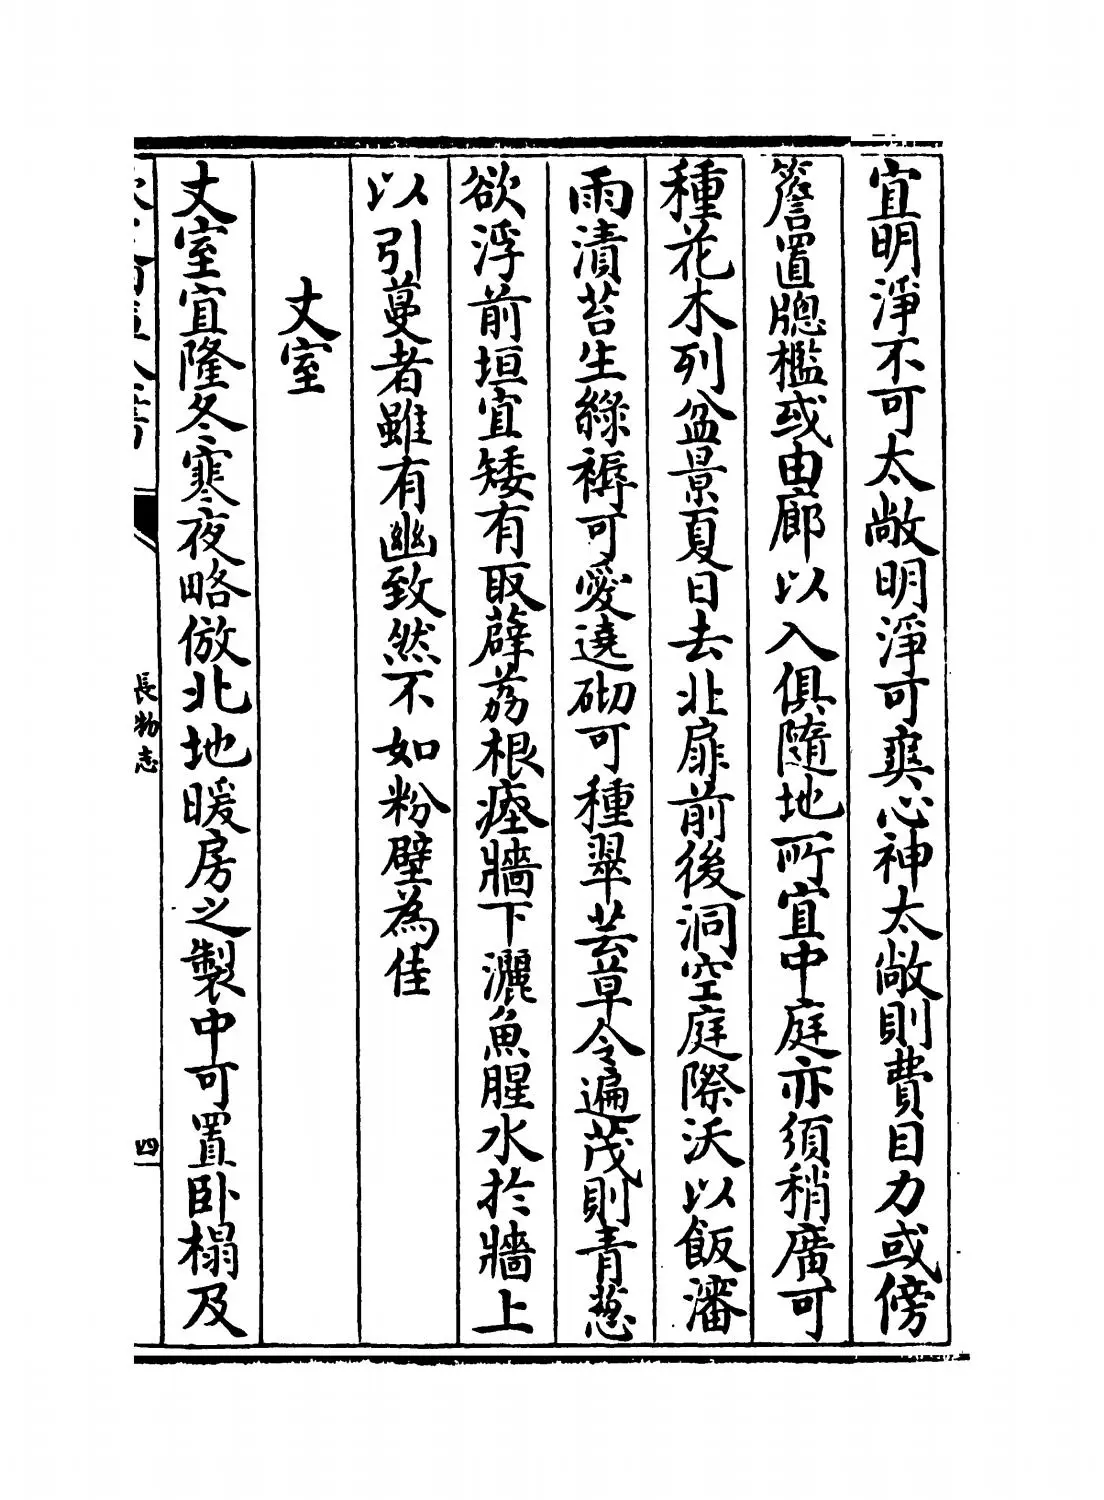 宜明淨不可太敞明淨可爽心神太敞則費目力或傍
簷置牎檻或由廊以入俱隨地所宜中庭亦須稍廣可
種花木列盆景夏日去北扉前後洞空庭際沃以飯瀋
雨漬苔生綠褥可愛遶砌可種翠芸草令遍茂則青蔥
欲浮前垣宜矮有取薜荔根瘞牆下灑魚腥水於牆上
以引蔓者雖有幽致然不如粉壁為佳
丈室
丈室宜隆冬寒夜略倣北地暖房之製中可置卧榻及
長物志
四